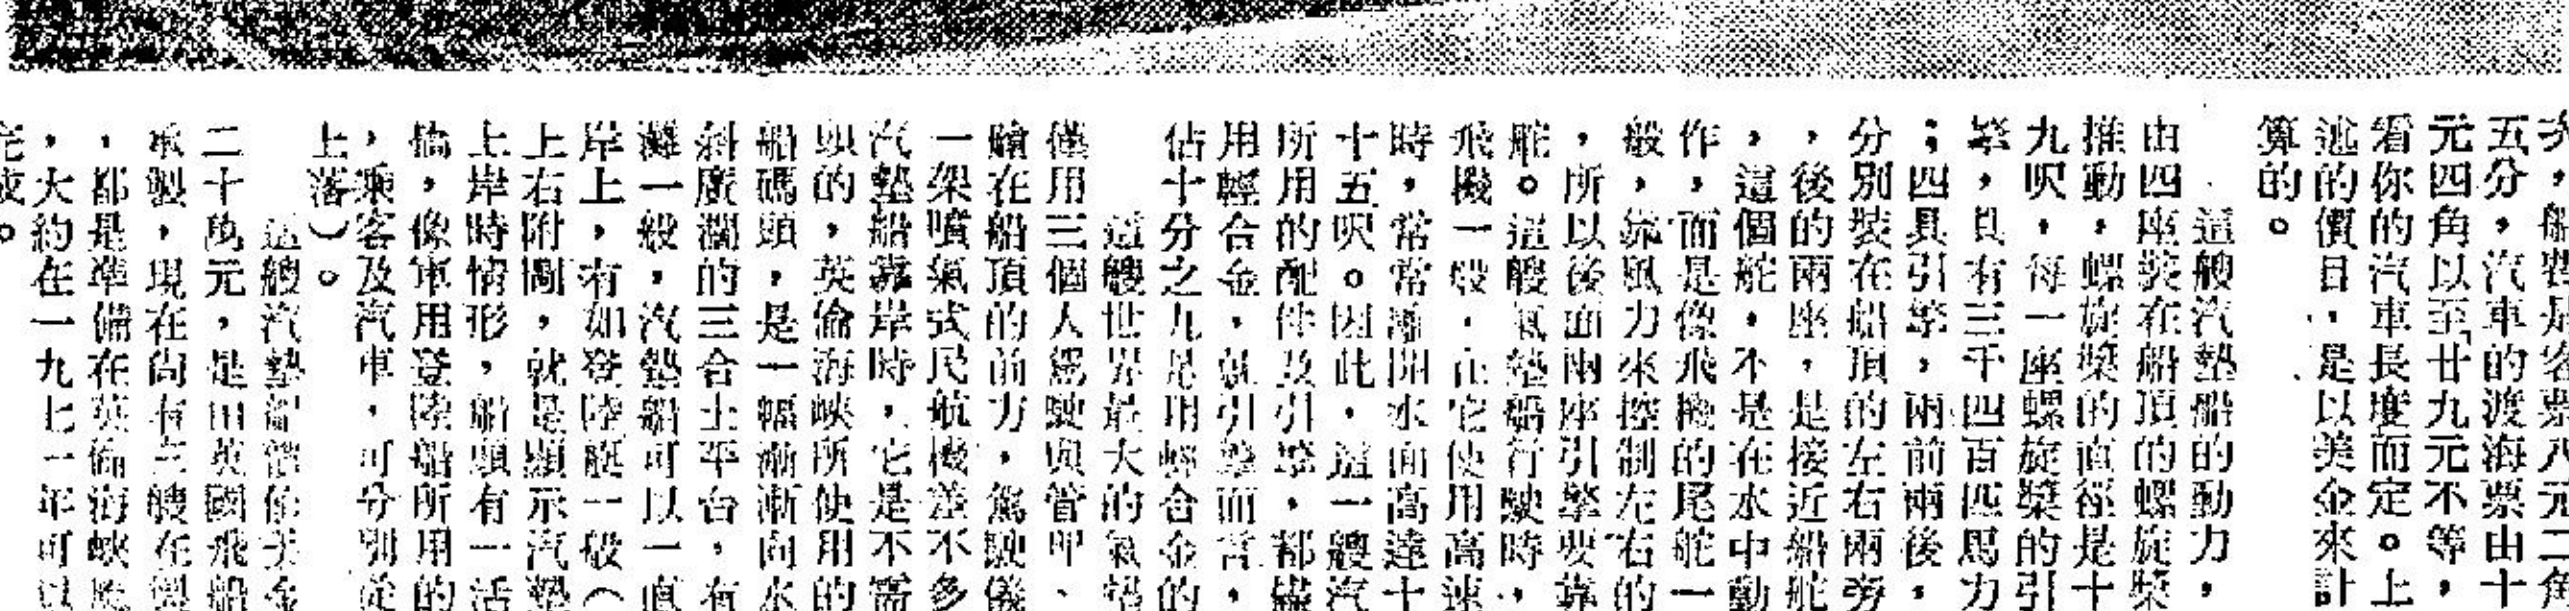 次，船費是客票八元二角
五分，汽車的渡海票由十
元四角以至廿九元不等，
看你的汽車長度而定。上
述的價目，是以美金來計
算的。
這艘汽墊船的動力，
由四座裝在船頂的螺旋槳
推動，螺旋槳的直徑是十
九呎，每一座螺旋槳的引
擎，具有三千四百匹馬力
；四具引擎，兩前兩後，
分別裝在船頂的左右兩旁
，後的兩座，是接近船舵
，這個舵，不是在水中動
作，而是像飛機的尾舵一
般，靠風力來控制左右的
，所以後面兩座引擎要靠
舵。這艘氣墊船行駛時，
飛機一般，在它使用高速
時，常常離開水面高達十
十五呎。因此，這一艘汽
所用的配件及引擎，都儘
用輕合金，就引擎而言，
佔十分之九是用輕合金的
這艘世界最大的氣墊
僅用三個人駕駛與管理、
艙在船頂的前方，駕駛儀
一架噴氣式民航機差不多
汽墊船靠岸時，它是不需
頭的，英倫海峽所使用的
船碼頭，是一幅漸漸向水
斜廣濶的三合土平台，有
灘一般，汽墊船可以一直
岸上，有如登陸艇一般（
上右附圖，就是顯示汽墊
上岸時情形，船頭有一活
橋，像軍用登陸船所用的
，乘客及汽車，可分別從
上落）。
這艘汽墊船價值美金
二十萬元，是由英國飛船
承製，現在尚有三艘在製
，都是準備在英倫海峽應
，大約在一九七一年可以
完成。